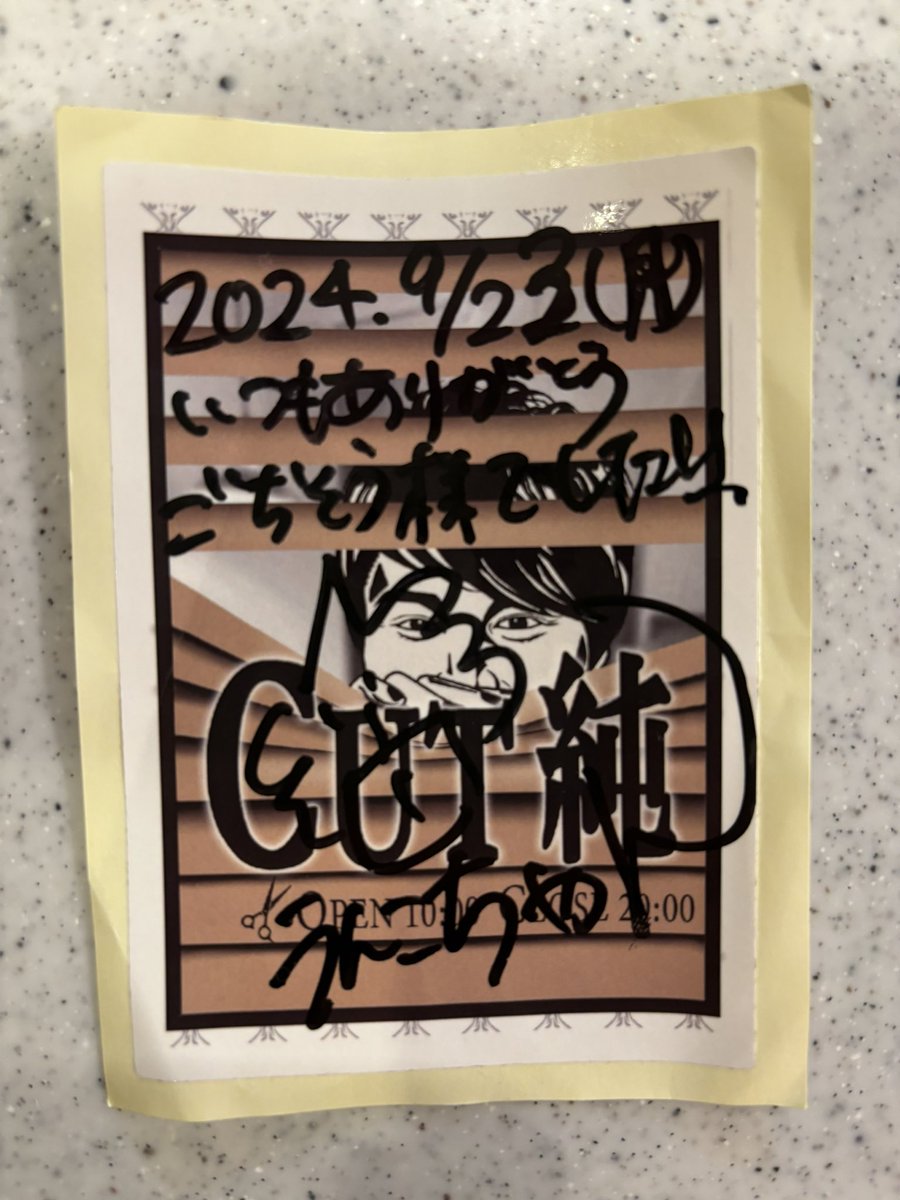 2024.9/23(月)
いつもありがとう
ごちそう様でした!!
CUT 純
OPEN 10:00 CLOSE 20:00